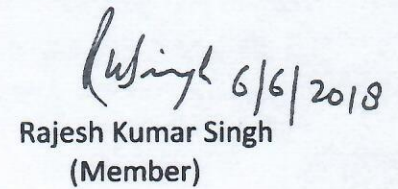 RKSingh 6/6/2018
Rajesh Kumar Singh
(Member)